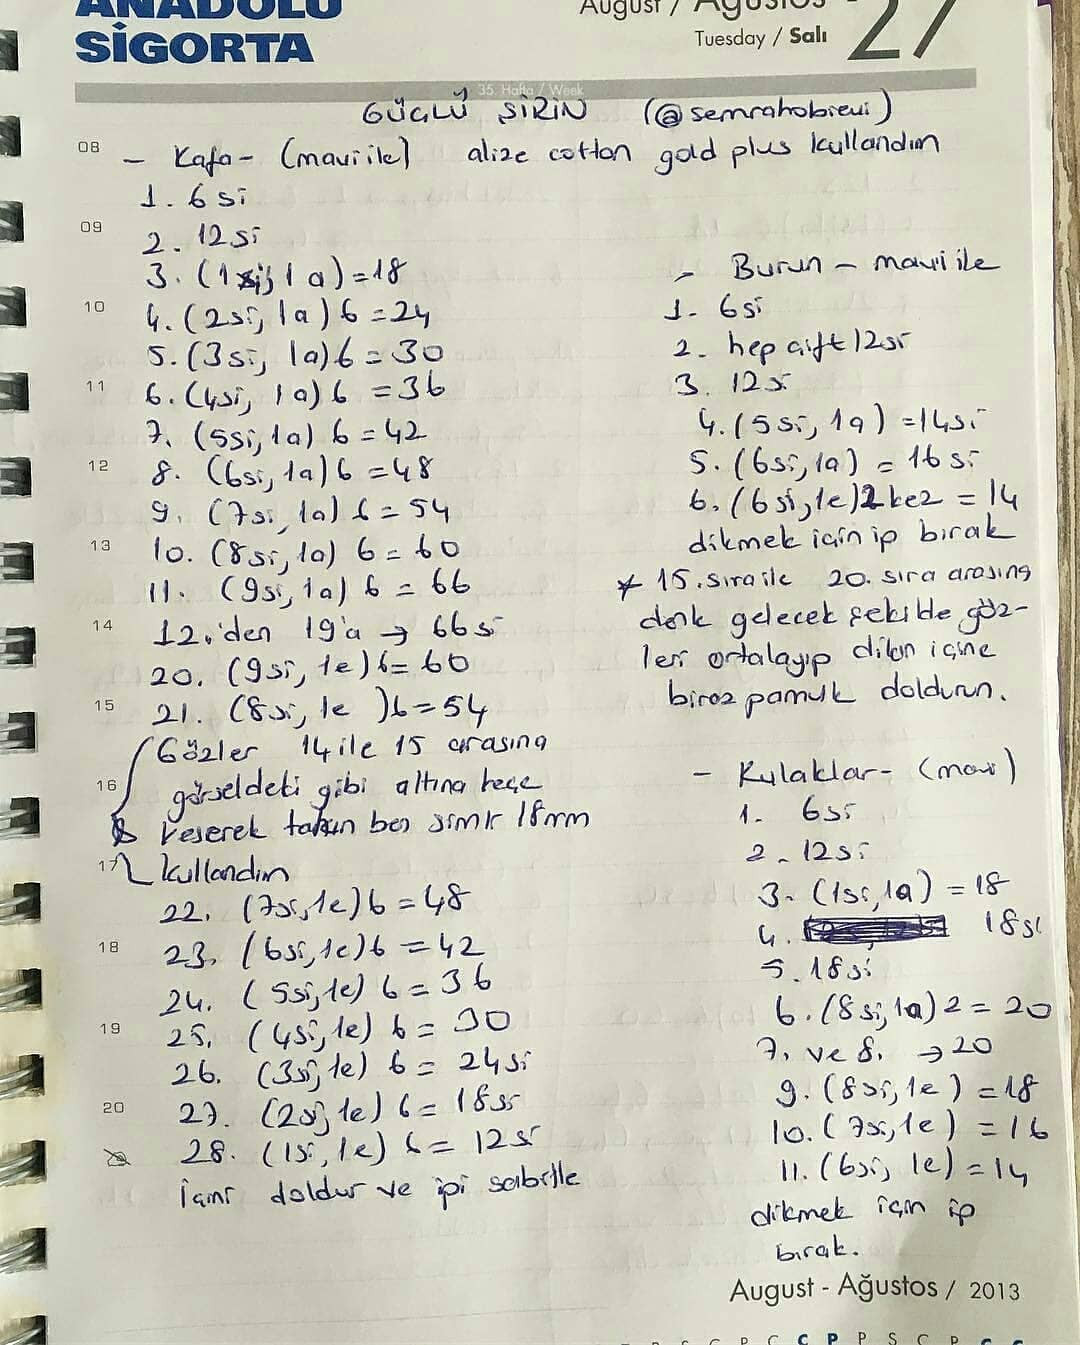 ANADOLU
SİGORTA
August / Ağustos - 27
Tuesday / Salı
35. Hafta / Week
GÜÇLÜ ŞİRİN (@semrahobievi)
08
- Kafa - (mavi ile) alize cotton gold plus kullandım
1. 6 si
09
2. 12 si
3. (1 si, 1 a) = 18
10
4. (2si, 1a) 6 = 24
5. (3si, 1a) 6 = 30
11
6. (4si, 1a) 6 = 36
7. (5si, 1a) 6 = 42
12
8. (6si, 1a) 6 = 48
9. (7si, 1a) 6 = 54
13
10. (8si, 1a) 6 = 60
11. (9si, 1a) 6 = 66
14
12.'den 19'a → 66 si
20. (9si, 1e) 6 = 60
15
21. (8si, 1e ) 6 = 54
Gözler 14 ile 15 arasına
16
görseldeki gibi altına keçe
keserek takın ben simli 18mm
17
kullandım
22. (7si, 1e) 6 = 48
18
23. (6si, 1e) 6 = 42
24. (5si, 1e) 6 = 36
19
25. (4si, 1e) 6 = 30
26. (3si, 1e) 6 = 24 si
20
27. (2si, 1e) 6 = 18 si
28. (1si, 1e) 6 = 12 si
içini doldur ve ipi sabitle
- Burun - mavi ile
1. 6si
2. hep çift 12si
3. 12 si
4. (5 si, 1a) = 14si
5. (6si, 1a) = 16 si
6. (6si, 1e) 2 kez = 14
dikmek için ip bırak
* 15. sıra ile 20. sıra arasına
denk gelecek şekilde göz-
leri ortalayıp dikin içine
biraz pamuk doldurun.
- Kulaklar - (mavi)
1. 6si
2. 12si
3. (1si, 1a) = 18
4. 18si
5. 18si
6. (8si, 1a) 2 = 20
7. ve 8. → 20
9. (8si, 1e) = 18
10. (7si, 1e) = 16
11. (6si, 1e) = 14
dikmek için ip
bırak.
August - Ağustos / 2013